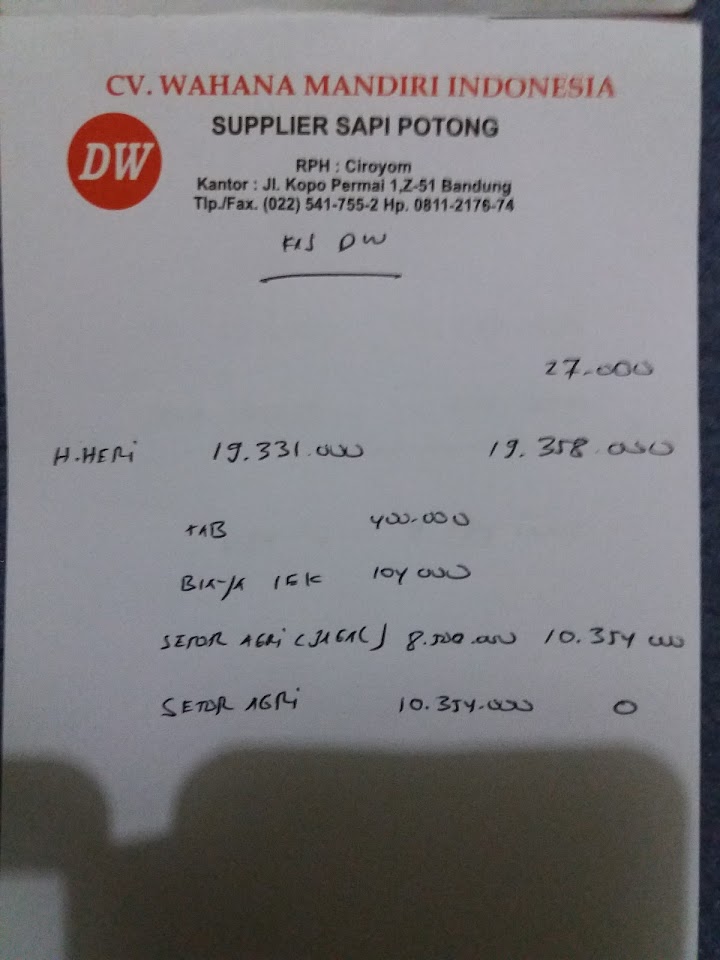 CV. WAHANA MANDIRI INDONESIA
DW
SUPPLIER SAPI POTONG
RPH : Ciroyom
Kantor : Jl. Kopo Permai 1,Z-51 Bandung
Tlp./Fax. (022) 541-755-2 Hp. 0811-2176-74
KAS DW
27.000
H.HERI 19.331.000 19.358.000
TAB 400.000
104 000
SETOR AGRI 8.500.000 10.354 000
SETOR AGRI 10.354.000 0